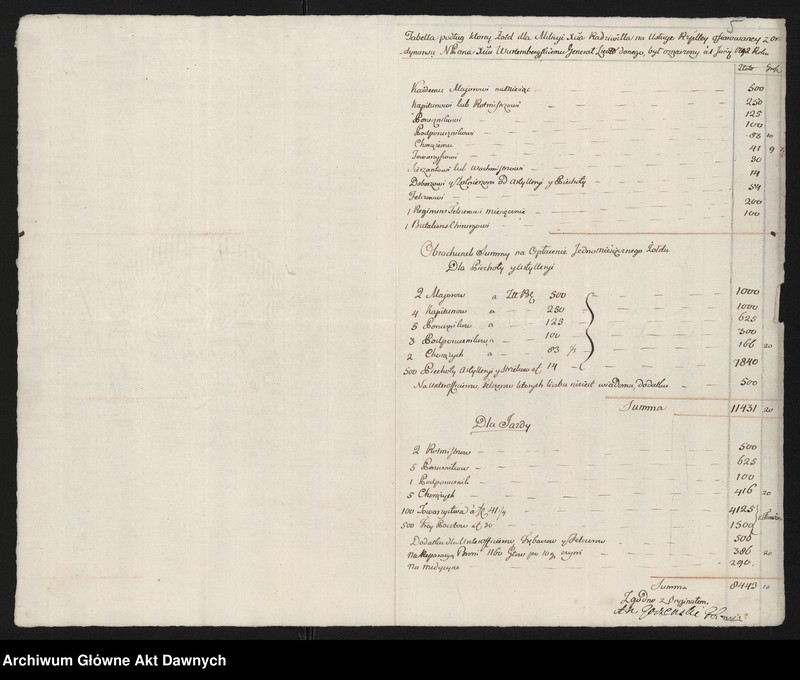 5
Tabella podług ktorey Żołd dla Milicyi Xcia Radziwiłła na Usługę Rzpltey ofiarowaney z Or-
dynansu JKana Xcia Wurtembergskiego Generał Lieutt danego, był oznaczony d 1 Junij 1792 Roku
Złote Gro
Każdemu Majorowi na Miesiąc 500
Kapitanowi lub Rotmistrzowi 250
Porucznikowi 125
Podporucznikowi 100
Chorążemu 83 10
Towarzyszowi 41 9
Sierżantowi lub Wachmistrzowi 30
Doboszowi y Żołnierzom od Artylleryi y Piechoty 14
Felczerowi 54
1 Regiment Felczerowi miesięcznie 200
1 Batalionu Chirurgowi 100
Obrachunek Summy na Opłacenie Jednomiesięcznego Żołdu
Dla Piechoty y Artylleryi
2 Majorow a Złt Pol 500 1000
4 Kapitanow a 250 1000
5 Porucznikow a 125 625
3 Podporucznikow a 100 300
2 Chorążych a 83 1/3 166 20
500 Piechoty Artylleryi y Strzelcow zł 14 7840
Na Unterofficerow, ktorych liczba niejest wiadoma, dodatku 500
Summa 11431 20
Dla Jazdy
2 Rotmistrzow 500
5 Porucznikow 625
1 Podporucznik 100
5 Chorążych 416 20
100 Towarzystwa à zł 41 1/4 4125
500 Trzy Pocztow zł 30 1500
Dodatku dla Unterofficerow, Trębaczow y Felczerow 500
Na Reparacyą 1160 po 10 g czyni 386 20
Na medycynę 290.
Summa 8443 10
Zgodno z Oryginałem.
Archiwum Główne Akt Dawnych